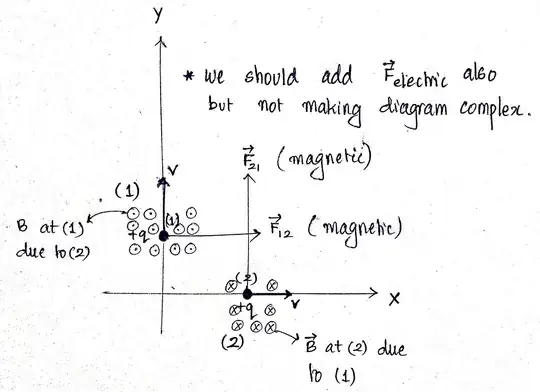 Y
* we should add F⃗electric also
but not making diagram complex.
F⃗21 (magnetic)
V
(1)
B at (1)
due to (2)
(1)
+q
F⃗12 (magnetic)
(2)
X
v
+q
(2)
B⃗ at (2) due
to (1)